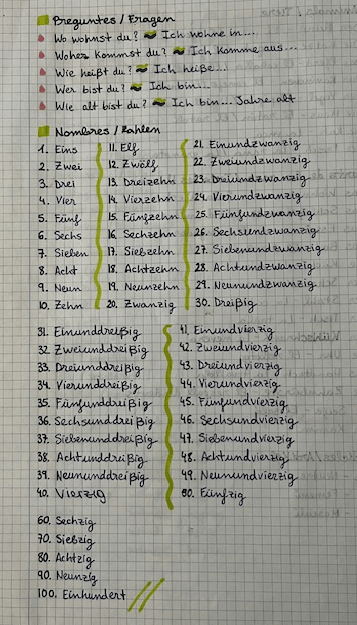 Preguntes / Fragen
Wo wohnst du? Ich wohne in...
Woher kommst du? Ich komme aus...
Wie heißt du? Ich heiße...
Wer bist du? Ich bin...
Wie alt bist du? Ich bin... Jahre alt
Nombres / Zahlen
1. Eins
2. Zwei
3. Drei
4. Vier
5. Fünf
6. Sechs
7. Sieben
8. Acht
9. Neun
10. Zehn
11. Elf
12. Zwölf
13. Dreizehn
14. Vierzehn
15. Fünfzehn
16. Sechzehn
17. Siebzehn
18. Achtzehn
19. Neunzehn
20. Zwanzig
21. Einundzwanzig
22. Zweiundzwanzig
23. Dreiundzwanzig
24. Vierundzwanzig
25. Fünfundzwanzig
26. Sechsundzwanzig
27. Siebenundzwanzig
28. Achtundzwanzig
29. Neunundzwanzig
30. Dreißig
31. Einunddreißig
32. Zweiunddreißig
33. Dreiunddreißig
34. Vierunddreißig
35. Fünfunddreißig
36. Sechsunddreißig
37. Siebenunddreißig
38. Achtunddreißig
39. Neununddreißig
40. Vierzig
41. Einundvierzig
42. Zweiundvierzig
43. Dreiundvierzig
44. Vierundvierzig
45. Fünfundvierzig
46. Sechsundvierzig
47. Siebenundvierzig
48. Achtundvierzig
49. Neunundvierzig
50. Fünfzig
60. Sechzig
70. Siebzig
80. Achtzig
90. Neunzig
100. Einhundert